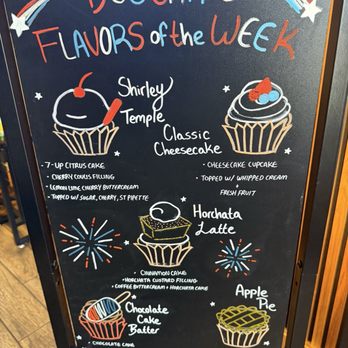 FLAVORS of the WEEK
Shirley
Temple
7-UP CITRUS CAKE
CHERRY COULIS FILLING
LEMON LIME CHERRY BUTTERCREAM
TOPPED W/ SUGAR, CHERRY, ST PIPETTE
Classic
Cheesecake
CHEESECAKE CUPCAKE
TOPPED W/ WHIPPED CREAM
+
FRESH FRUIT
Horchata
Latte
CINNAMON CAKE
HORCHATA CUSTARD FILLING
COFFEE BUTTERCREAM + HORCHATA CAKE
Chocolate
Cake
Batter
CHOCOLATE CAKE
Apple
Pie